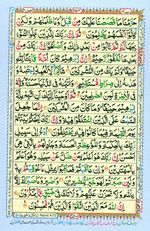 حَرَّمْنَا مَا قَصَصْنَا عَلَيْكَ مِنْ قَبْلُ وَمَا ظَلَمْنٰهُمْ وَلٰكِنْ
كَانُوْٓا اَنْفُسَهُمْ يَظْلِمُوْنَ ثُمَّ اِنَّ رَبَّكَ لِلَّذِيْنَ عَمِلُوا السُّوْٓءَ
بِجَهَالَةٍ ثُمَّ تَابُوْا مِنْۢ بَعْدِ ذٰلِكَ وَاَصْلَحُوْٓا اِنَّ رَبَّكَ مِنْۢ
بَعْدِهَا لَغَفُوْرٌ رَّحِيْمٌ اِنَّ اِبْرٰهِيْمَ كَانَ اُمَّةً قَانِتًا لِّلّٰهِ
حَنِيْفًا وَلَمْ يَكُ مِنَ الْمُشْرِكِيْنَ شَاكِرًا لِّاَنْعُمِهٖ اِجْتَبٰىهُ
وَهَدٰىهُ اِلٰى صِرَاطٍ مُّسْتَقِيْمٍ وَاٰتَيْنٰهُ فِى الدُّنْيَا حَسَنَةً وَاِنَّهٗ
فِى الْاٰخِرَةِ لَمِنَ الصّٰلِحِيْنَ ثُمَّ اَوْحَيْنَآ اِلَيْكَ اَنِ اتَّبِعْ مِلَّةَ
اِبْرٰهِيْمَ حَنِيْفًا وَمَا كَانَ مِنَ الْمُشْرِكِيْنَ اِنَّمَا جُعِلَ
السَّبْتُ عَلَى الَّذِيْنَ اخْتَلَفُوْا فِيْهِ وَاِنَّ رَبَّكَ لَيَحْكُمُ بَيْنَهُمْ
يَوْمَ الْقِيٰمَةِ فِيْمَا كَانُوْا فِيْهِ يَخْتَلِفُوْنَ اُدْعُ اِلٰى سَبِيْلِ
رَبِّكَ بِالْحِكْمَةِ وَالْمَوْعِظَةِ الْحَسَنَةِ وَجَادِلْهُمْ بِالَّتِيْ هِيَ
اَحْسَنُ اِنَّ رَبَّكَ هُوَ اَعْلَمُ بِمَنْ ضَلَّ عَنْ سَبِيْلِهٖ وَهُوَ اَعْلَمُ
بِالْمُهْتَدِيْنَ وَاِنْ عَاقَبْتُمْ فَعَاقِبُوْا بِمِثْلِ مَا عُوْقِبْتُمْ بِهٖ وَلَئِنْ
صَبَرْتُمْ لَهُوَ خَيْرٌ لِّلصّٰبِرِيْنَ وَاصْبِرْ وَمَا صَبْرُكَ اِلَّا بِاللّٰهِ
وَلَا تَحْزَنْ عَلَيْهِمْ وَلَا تَكُ فِيْ ضَيْقٍ مِّمَّا يَمْكُرُوْنَ
اِنَّ اللّٰهَ مَعَ الَّذِيْنَ اتَّقَوْا وَّالَّذِيْنَ هُمْ مُّحْسِنُوْنَ